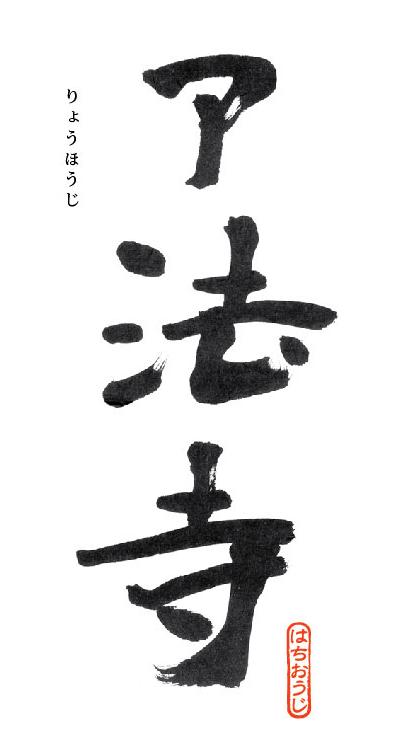 了法寺
りょうほうじ
はちおうじ